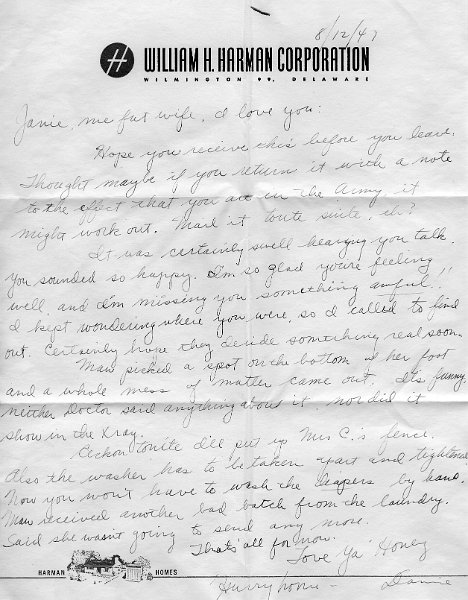 8/12/47
H WILLIAM H. HARMAN CORPORATION
WILMINGTON 99, DELAWARE
Janie, me fat wife, I love you:
Hope you receive this before you leave.
Thought maybe if you return it with a note
to the effect that you are in the Army it
might work out. Mail it toute suite, eh?
It was certainly swell hearing you talk.
You sounded so happy. I'm so glad you're feeling
well, and I'm missing you something awful!!
I kept wondering where you were, so I called to find
out. Certainly hope they decide something real soon.
Maw picked a spot on the bottom of her foot
and a whole mess of matter came out. It's funny
neither Doctor said anything about it nor did it
show in the Xray.
Reckon tonite I'll put up Mrs C.'s fence.
Also the washer has to be taken apart and tightened.
Now you won't have to wash the diapers by hand.
Maw received another bad batch from the laundry.
Said she wasn't going to send any more.
That's all for now.
Love Ya' Honey
HARMAN HOMES
Hurry home -